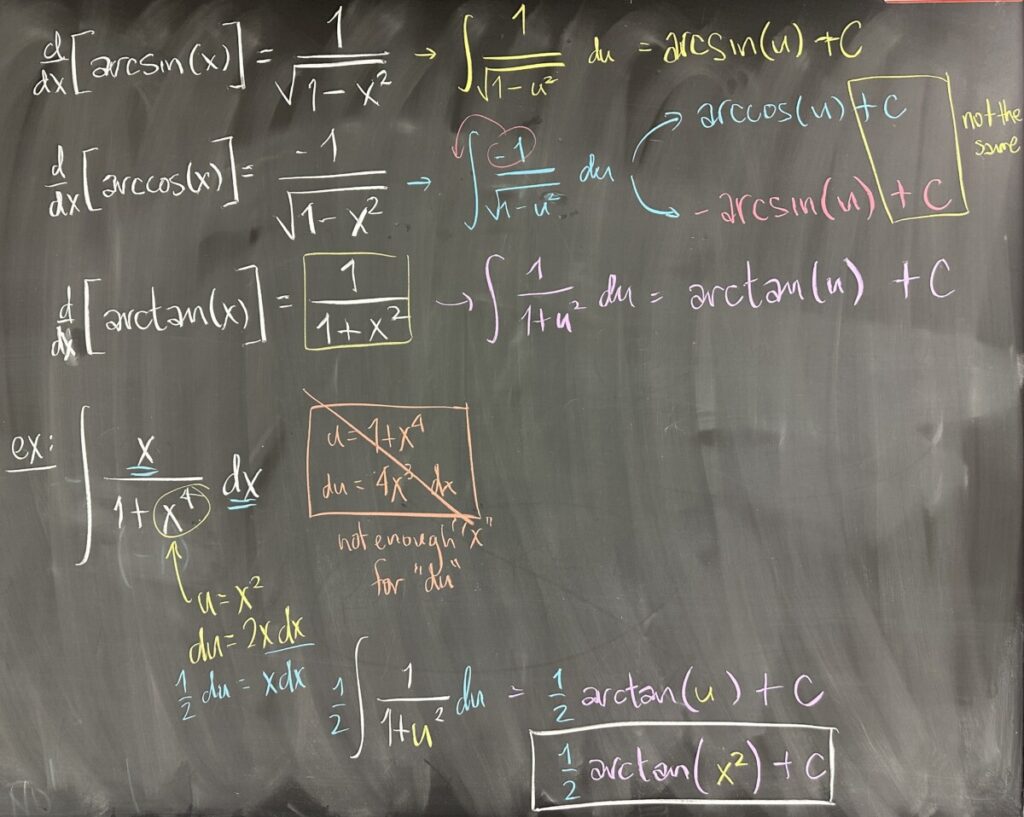 d/dx [arcsin(x)] = 1/√(1-x²) → ∫ 1/√(1-u²) du = arcsin(u) + C
d/dx [arccos(x)] = -1/√(1-x²) → ∫ -1/√(1-u²) du
arccos(u) + C
-arcsin(u) + C
not the
same
d/dx [arctan(x)] = 1/(1+x²) → ∫ 1/(1+u²) du = arctan(u) + C
ex: ∫ x/(1+x⁴) dx
u = 1+x⁴
du = 4x³ dx
not enough "x"
for "du"
u = x²
du = 2x dx
1/2 du = x dx
1/2 ∫ 1/(1+u²) du = 1/2 arctan(u) + C
1/2 arctan(x²) + C